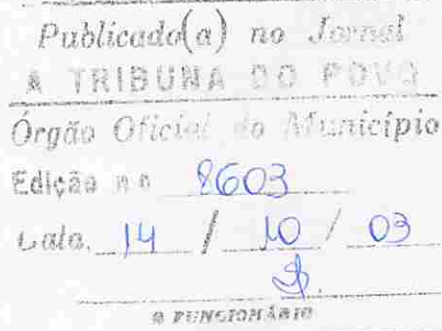 Publicado(a) no Jornal
A TRIBUNA DO POVO
Órgão Oficial do Município
Edição nº 8603
Data. 14 / 10 / 03
O FUNCIONÁRIO